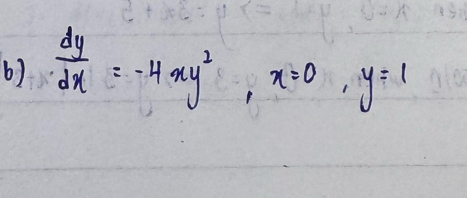 b) dy/dx = -4xy², x=0, y=1